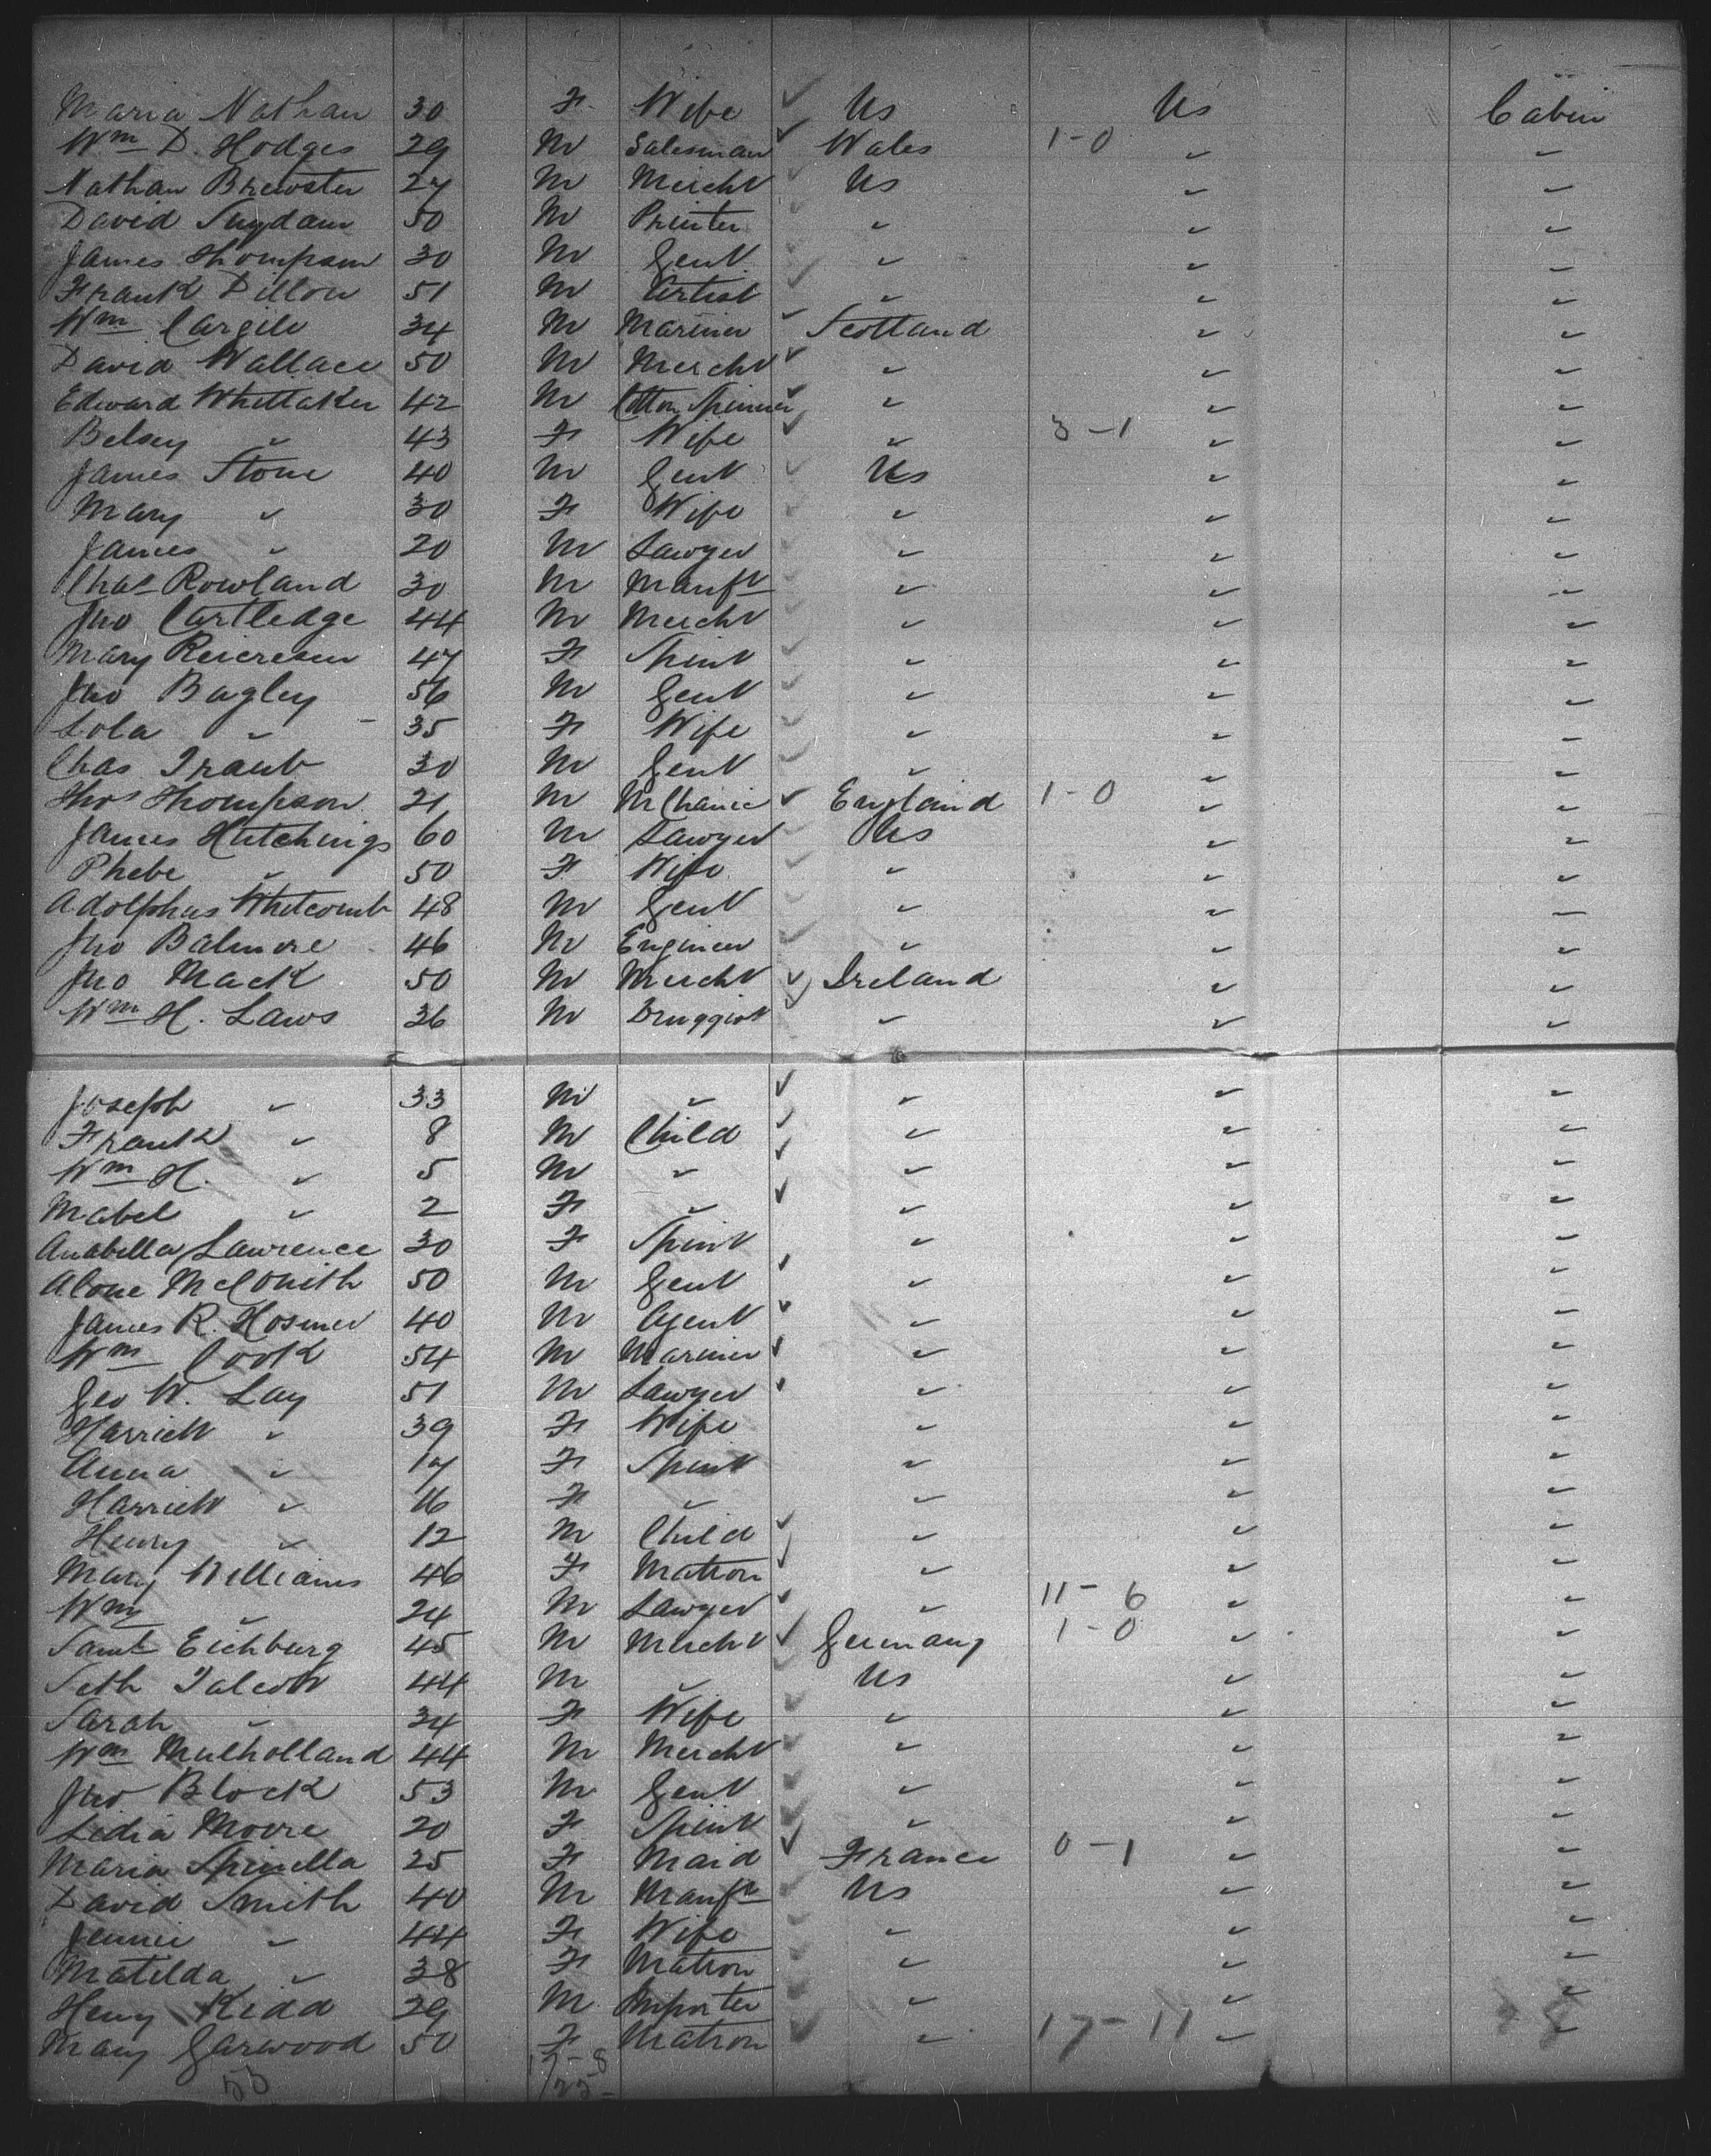 Maria Nathan 30 F Wife ✓ Us Us Cabin
Wm D. Hodges 29 M Salesman ✓ Wales 1-0 " "
Nathan Brewster 27 M Mercht ✓ Us " "
David Suydam 50 M Printer ✓ " " "
James Thompson 30 M Gent ✓ " " "
Frank Dillon 51 M Artist ✓ " " "
Wm Cargile 34 M Mariner ✓ Scotland " "
David Wallace 50 M Mercht ✓ " " "
Edward Whittaker 42 M Cotton Spinner ✓ " " "
Betsey " 43 F Wife ✓ " 3-1 " "
James Stone 40 M Gent ✓ Us " "
Mary " 30 F Wife ✓ " " "
James " 20 M Lawyer ✓ " " "
Chas Rowland 30 M Manfr ✓ " " "
Jno Cartledge 44 M Mercht ✓ " " "
Mary 47 F Spins ✓ " " "
Jno Bagley 56 M Gent ✓ " " "
Lola " 35 F Wife ✓ " " "
Chas Traub 30 M Gent ✓ " " "
Thos Thompson 21 M MChanic ✓ England 1-0 " "
James Hutchings 60 M Lawyer ✓ Us " "
Phebe " 50 F Wife ✓ " " "
Adolphus Whitcomb 48 M Gent ✓ " " "
Jno Balmore 46 M Engineer ✓ " " "
Jno Mack 50 M Mercht ✓ Ireland " "
Wm H. Laws 36 M Druggist ✓ " " "
Joseph " 33 M " ✓ " " "
Frank " 8 M Child ✓ " " "
Wm H. " 5 M " ✓ " " "
Mabel " 2 F " ✓ " " "
Anabella Lawrence 30 F Spins " " "
Alone McConith 50 M Gent ✓ " " "
James R. Hosmer 40 M Agent ✓ " " "
Wm Cook 54 M Mariner ✓ " " "
Geo W. Lay 51 M Lawyer ✓ " " "
Harriett " 39 F Wife " " "
Anna " 17 F Spins " " "
Harriett " 16 F " " " "
Henry " 12 M Child ✓ " " "
Mary Williams 46 F Matron ✓ " " "
Wm " 24 M Lawyer ✓ " 11-6 " "
Saml Eichburg 45 M Mercht ✓ Germany 1-0 " "
Seth Talcott 44 M " Us " "
Sarah " 34 F Wife ✓ " " "
Wm Mulholland 44 M Mercht ✓ " " "
Jno Block 53 M Gent ✓ " " "
Lidia Moore 20 F Spins ✓ " " "
Maria Spinella 25 F Maid ✓ France 0-1 " "
David Smith 40 M Manfr ✓ Us " "
Jennie " 44 F Wife ✓ " " "
Matilda " 38 F Matron ✓ " " "
Heny Kidd 29 M Importer ✓ " " "
Mary Garwood 50 F Matron ✓ " 17-11 " "
53 17-8
/25-